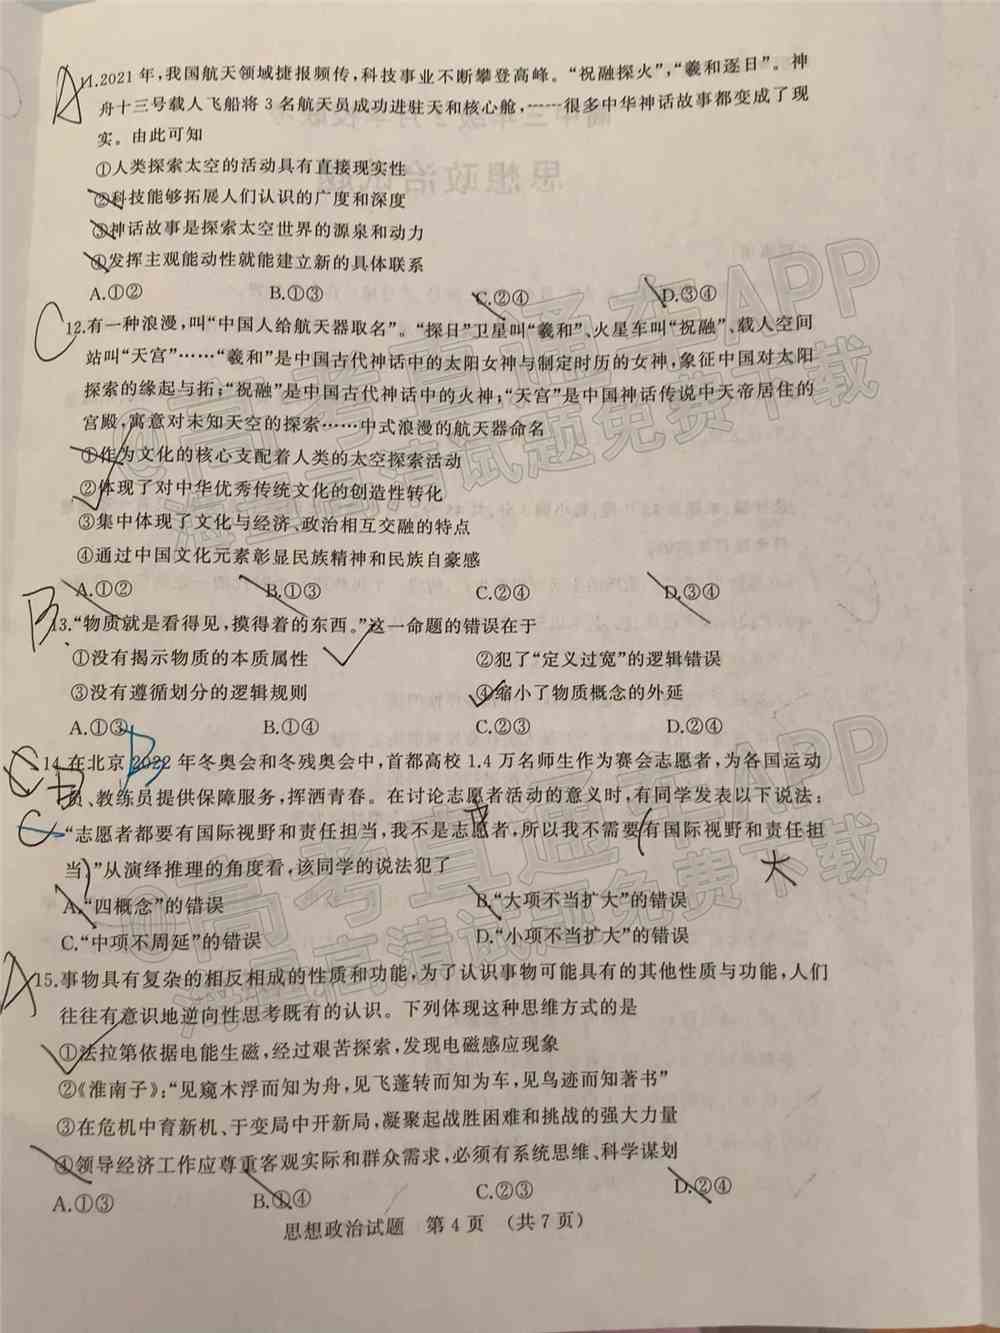 A
11.2021年,我国航天领域捷报频传,科技事业不断攀登高峰。“祝融探火”,“羲和逐日”。神
舟十三号载人飞船将3名航天员成功进驻天和核心舱,……很多中华神话故事都变成了现
实。由此可知
①人类探索太空的活动具有直接现实性
②科技能够拓展人们认识的广度和深度
③神话故事是探索太空世界的源泉和动力
④发挥主观能动性就能建立新的具体联系
A.①② B.①③ C.②④ D.③④
C
12.有一种浪漫,叫“中国人给航天器取名”。“探日”卫星叫“羲和”、火星车叫“祝融”、载人空间
站叫“天宫”……“羲和”是中国古代神话中的太阳女神与制定时历的女神,象征中国对太阳
探索的缘起与拓;“祝融”是中国古代神话中的火神;“天宫”是中国神话传说中天帝居住的
宫殿,寓意对未知天空的探索……中式浪漫的航天器命名
①作为文化的核心支配着人类的太空探索活动
②体现了对中华优秀传统文化的创造性转化
③集中体现了文化与经济、政治相互交融的特点
④通过中国文化元素彰显民族精神和民族自豪感
A.①② B.①③ C.②④ D.③④
B.
13.“物质就是看得见,摸得着的东西。”这一命题的错误在于
①没有揭示物质的本质属性 ②犯了“定义过宽”的逻辑错误
③没有遵循划分的逻辑规则 ④缩小了物质概念的外延
A.①③ B.①④ C.②③ D.②④
B
14.在北京2022年冬奥会和冬残奥会中,首都高校1.4万名师生作为赛会志愿者,为各国运动
员、教练员提供保障服务,挥洒青春。在讨论志愿者活动的意义时,有同学发表以下说法:
“志愿者都要有国际视野和责任担当,我不是志愿者,所以我不需要有国际视野和责任担
当。”从演绎推理的角度看,该同学的说法犯了
大
A.“四概念”的错误 B.“大项不当扩大”的错误
C.“中项不周延”的错误 D.“小项不当扩大”的错误
A
15.事物具有复杂的相反相成的性质和功能,为了认识事物可能具有的其他性质与功能,人们
往往有意识地逆向性思考既有的认识。下列体现这种思维方式的是
①法拉第依据电能生磁,经过艰苦探索,发现电磁感应现象
②《淮南子》:“见窾木浮而知为舟,见飞蓬转而知为车,见鸟迹而知著书”
③在危机中育新机、于变局中开新局,凝聚起战胜困难和挑战的强大力量
④领导经济工作应尊重客观实际和群众需求,必须有系统思维、科学谋划
A.①③ B.①④ C.②③ D.②④
思想政治试题 第4页 (共7页)
@高考直通车APP
海量高清试题免费下载
@高考直通车APP
海量高清试题免费下载